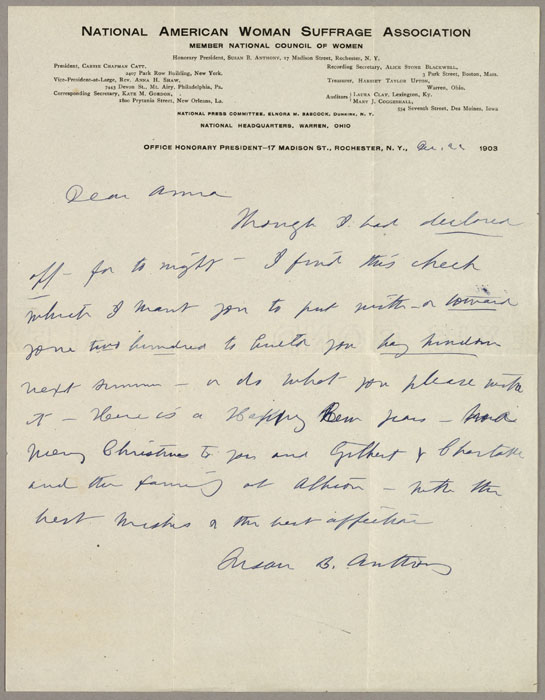 NATIONAL AMERICAN WOMAN SUFFRAGE ASSOCIATION
MEMBER NATIONAL COUNCIL OF WOMEN
Honorary President, SUSAN B. ANTHONY, 17 Madison Street, Rochester, N. Y.
President, CARRIE CHAPMAN CATT,
2407 Park Row Building, New York.
Vice-President-at-Large, REV. ANNA H. SHAW,
7443 Devon St., Mt. Airy, Philadelphia, Pa.
Corresponding Secretary, KATE M. GORDON,
1800 Prytania Street, New Orleans, La.
Recording Secretary, ALICE STONE BLACKWELL,
3 Park Street, Boston, Mass.
Treasurer, HARRIET TAYLOR UPTON,
Warren, Ohio.
Auditors { LAURA CLAY, Lexington, Ky.
MARY J. COGGESHALL,
554 Seventh Street, Des Moines, Iowa
NATIONAL PRESS COMMITTEE, ELNORA M. BABCOCK, DUNKIRK, N. Y.
NATIONAL HEADQUARTERS, WARREN, OHIO
OFFICE HONORARY PRESIDENT—17 MADISON ST., ROCHESTER, N. Y., 1903
Dear Anna
Though I had declared
off - for to night - I find this check
which I want you to put with - or toward
two hundred to build you bay window
next summer - or do what you please with
it Here is a Happy New years - and
Merry Christmas to you and Gilbert & Charlotte
and the family at Albion - with the
best wishes & the best affection
Susan B. Anthony